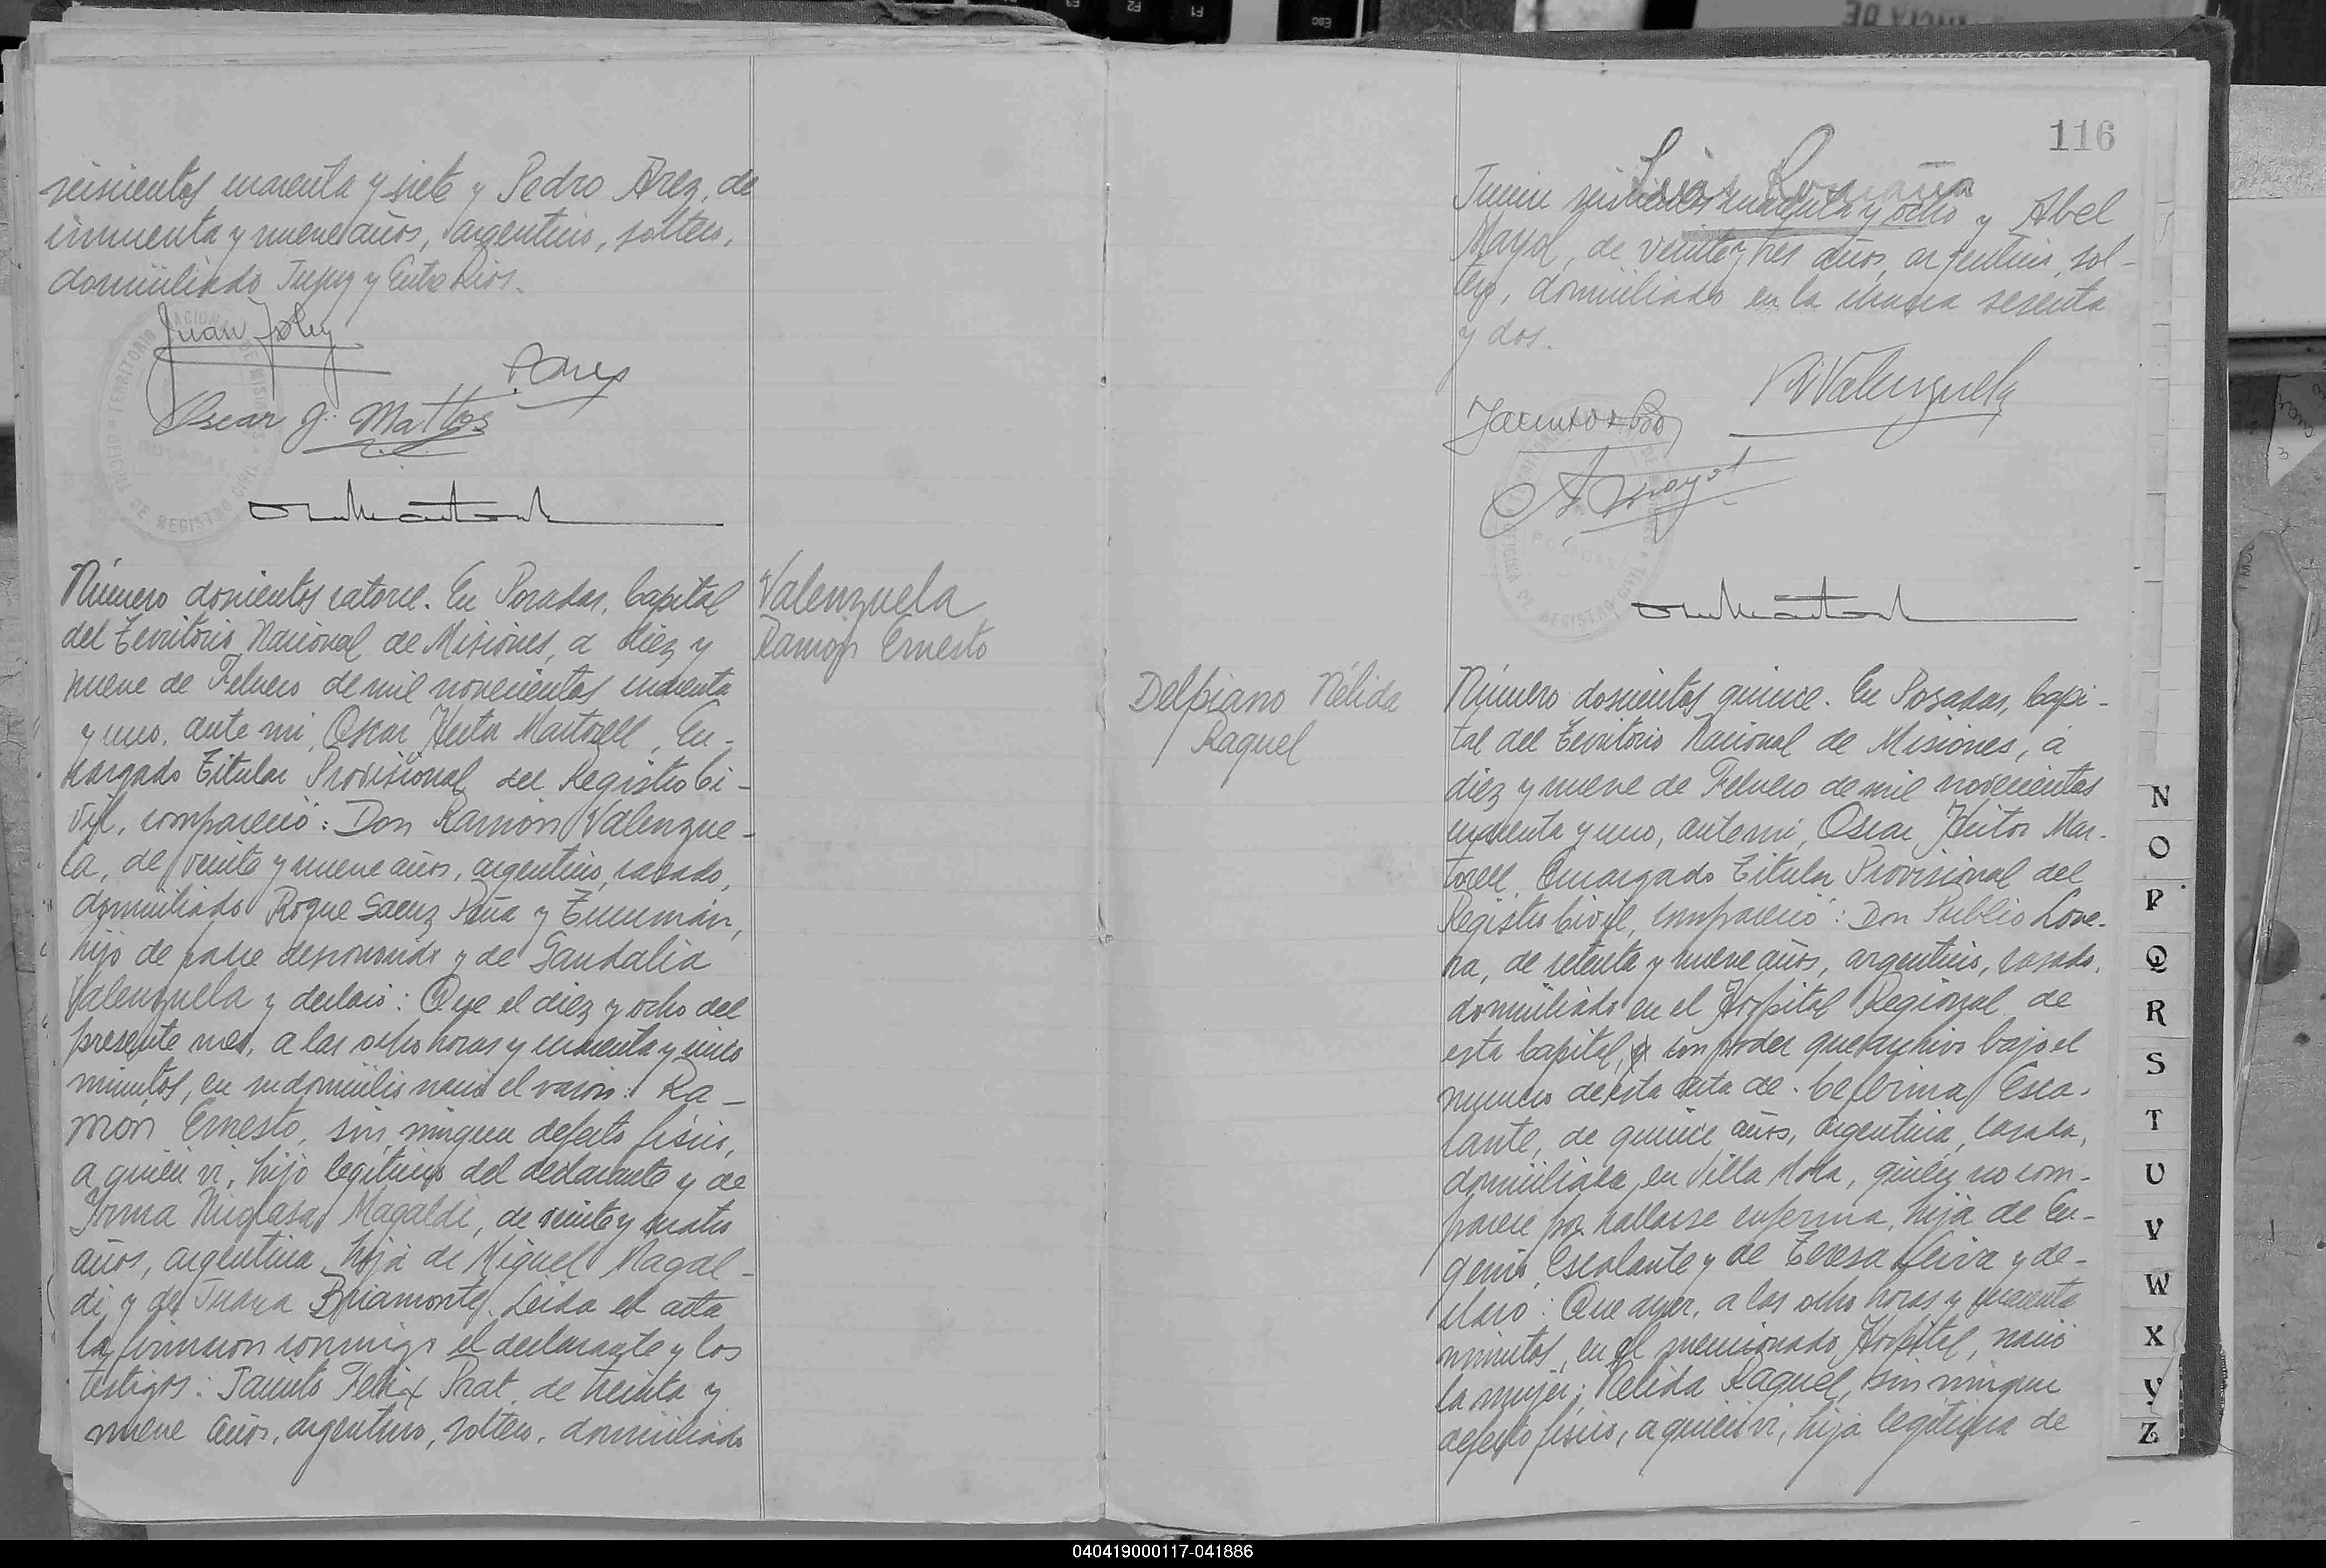 seiscientos cuarenta y siete y Pedro Arez, de
cincuenta y nueve años, argentino, soltero,
domiciliado Jujuy y Entre Rios.
Juan
Oscar J. Mattos
Número doscientos catorce. En Posadas, Capital
del Territorio Nacional de Misiones, a diez y
nueve de Febrero de mil novecientos cuarenta
y uno, ante mi, Oscar Hector Martorell, En-
cargado Titular Provisional del Registro Ci-
vil, compareció: Don Ramón Valenzue-
la, de veinte y nueve años, argentino, casado,
domiciliado Roque Saenz Peña y Tucumán,
hijo de padre desconocido y de Sandalia
Valenzuela y declaró: Que el diez y ocho del
presente mes, a las ocho horas y cuarenta y cinco
minutos, en su domicilio nació el varón: Ra-
món Ernesto, sin ningun defecto fisico,
a quien vi, hijo legitimo del declarante y de
Irma Magaldi, de veinte y cuatro
años, argentina, hija de Miguel Magal-
di y de Juana Briamonte. Leida el acta
la firmaron conmigo el declarante y los
testigos: Jacinto Felix Prat, de treinta y
nueve años, argentino, soltero, domiciliado
Valenzuela
Ramon Ernesto
116
Junin seiscientos cuarenta y ocho y Abel
Mayol, de veinte y tres años, argentino, sol-
tero, domiciliado en la chacra sesenta
y dos.
R Valenzuela
A Mayol
Delpiano Nélida
Raquel
Número doscientos quince. En Posadas, Capi-
tal del Territorio Nacional de Misiones, á
diez y nueve de Febrero de mil novecientos
cuarenta y uno, ante mi, Oscar Hector Mar-
torell, Encargado Titular Provisional del
Registro Civil, compareció: Don Publio Love-
ra, de setenta y nueve años, argentino, casado,
domiciliado en el Hospital Regional de
esta Capital, con poder que archivo bajo el
numero de esta acta de Ceferina Esca-
lante, de quince años, argentina, casada,
domiciliada en Villa Mota, quién no com-
parece por hallarse enferma, hija de Eu-
genio Escalante y de Teresa Neira y de-
claró: Que ayer, a las ocho horas y cuarenta
minutos, en el mencionado Hospital, nació
la mujer: Nélida Raquel, sin ningun
defecto fisico, a quien vi, hija legitima de
N
O
P
Q
R
S
T
U
V
W
X
Y
Z
040419000117-041886